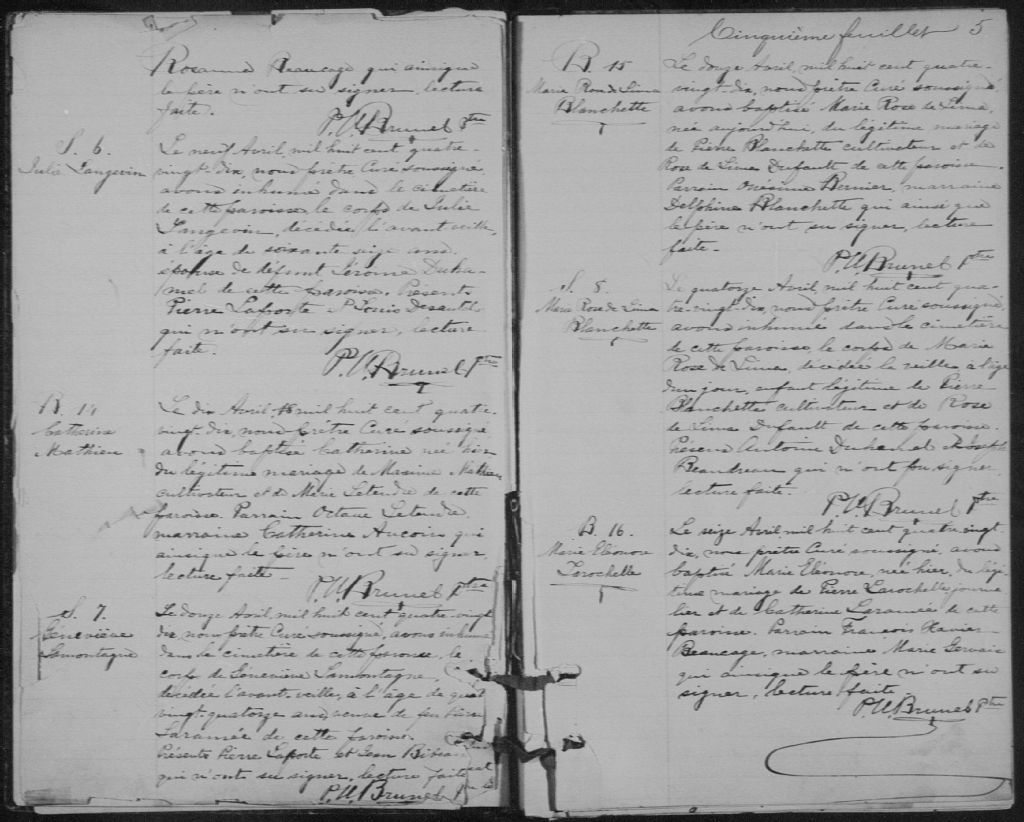 Rosanna Beaucage qui ainsique
le père n'ont su signer, lecture
faite.
P. U. Brunel Ptre
S. 6.
Julie Langevin
Le neuf Avril, mil huit cent quatre-
vingt-dix, nous prêtre Curé soussigné
avons inhumé dans le cimetière
de cette paroisse, le corps de Julie
Langevin, décédée l'avant veille,
à l'âge de soixante seize ans
épouse de défunt Jérome Duha-
mel de cette paroisse. Présents
Pierre Laforte & Louis Desault
qui n'ont su signer, lecture
faite.
P. U. Brunel Ptre
B. 14
Catherine
Mathieu
Le dix Avril mil huit cent quatre-
vingt-dix, nous prêtre Curé soussigné
avons baptisé Catherine née hier
du légitime mariage de Maxime Mathieu
cultivateur et de Marie Letendre de cette
paroisse. Parrain Octave Letendre
marraine Catherine Aucoin qui
ainsique le père n'ont su signer
lecture faite.
P. U. Brunel Ptre
S. 7
Geneviève
Lamontagne
Le douze Avril, mil huit cent quatre-vingt
dix, nous prêtre Curé soussigné, avons inhumé
dans le cimetière de cette paroisse, le
corps de Geneviève Lamontagne,
décédée l'avant-veille, à l'âge de quat
vingt-quatorze ans, veuve de feu Pierre
Laramée de cette paroisse.
Présents Pierre Laporte et Jean
qui n'ont su signer, lecture faite
P. U. Brunel P
Cinquième feuillet 5
B. 15
Marie Rose de Lima
Blanchette
Le douze Avril, mil huit cent quatre-
vingt-dix, nous prêtre Curé soussigné
avons baptisé Marie Rose de Lima,
née aujourd'hui, du légitime mariage
de Pierre Blanchette cultivateur et de
Rose de Lima Dufault de cette paroisse.
Parrain Onésime Bernier, marraine
Delphine Blanchette qui ainsi que
le père n'ont su signer, lecture
faite.
P. U. Brunel Ptre
S. 8.
Marie Rose de Lima
Blanchette
Le quatorze Avril, mil huit cent qua-
tre-vingt-dix, nous prêtre Curé soussigné,
avons inhumé dans le cimetière
de cette paroisse, le corps de Marie
Rose de Lima, décédée la veille à l'âge
d'un jour, enfant légitime de Pierre
Blanchette cultivateur et de Rose
de Lima Dufault de cette paroisse.
Présens Antoine Duhamel & Joseph
Beaudreau qui n'ont pu signer
lecture faite.
P. U. Brunel Ptre
B. 16.
Marie Eléonore
Larochelle
Le seize Avril, mil huit cent quatre vingt
dix, nous prêtre Curé soussigné, avons
baptisé Marie Eléonore, née hier, du légi-
time mariage de Pierre Larochelle journa-
lier et de Catherine Laramée de cette
paroisse. Parrain François Xavier
Beaucage, marraine Marie Gervais
qui ainsique le père n'ont su
signer, lecture faite
P. U. Brunel Ptre